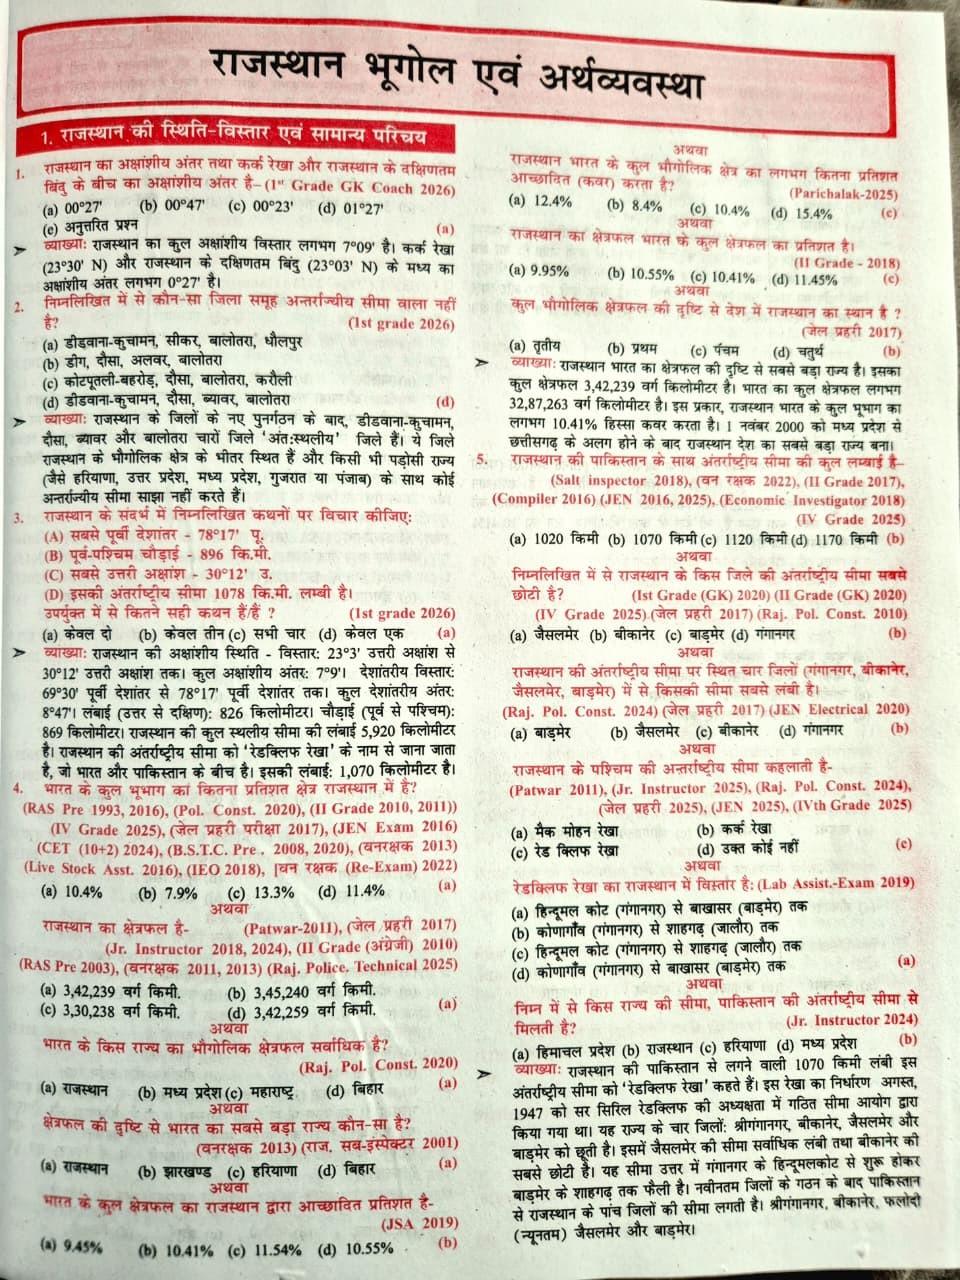 राजस्थान भूगोल एवं अर्थव्यवस्था
1. राजस्थान की स्थिति-विस्तार एवं सामान्य परिचय
1. राजस्थान का अक्षांशीय अंतर तथा कर्क रेखा और राजस्थान के दक्षिणतम
बिंदु के बीच का अक्षांशीय अंतर है– (1st Grade GK Coach 2026)
(a) 00°27' (b) 00°47' (c) 00°23' (d) 01°27'
(e) अनुत्तरित प्रश्न (a)
➤ व्याख्या: राजस्थान का कुल अक्षांशीय विस्तार लगभग 7°09' है। कर्क रेखा
(23°30' N) और राजस्थान के दक्षिणतम बिंदु (23°03' N) के मध्य का
अक्षांशीय अंतर लगभग 0°27' है।
2. निम्नलिखित में से कौन-सा जिला समूह अन्तर्राज्यीय सीमा वाला नहीं
है? (1st grade 2026)
(a) डीडवाना-कुचामन, सीकर, बालोतरा, धौलपुर
(b) डीग, दौसा, अलवर, बालोतरा
(c) कोटपूतली-बहरोड़, दौसा, बालोतरा, करौली
(d) डीडवाना-कुचामन, दौसा, ब्यावर, बालोतरा (d)
➤ व्याख्या: राजस्थान के जिलों के नए पुनर्गठन के बाद, डीडवाना-कुचामन,
दौसा, ब्यावर और बालोतरा चारों जिले 'अंत:स्थलीय' जिले हैं। ये जिले
राजस्थान के भौगोलिक क्षेत्र के भीतर स्थित हैं और किसी भी पड़ोसी राज्य
(जैसे हरियाणा, उत्तर प्रदेश, मध्य प्रदेश, गुजरात या पंजाब) के साथ कोई
अन्तर्राज्यीय सीमा साझा नहीं करते हैं।
3. राजस्थान के संदर्भ में निम्नलिखित कथनों पर विचार कीजिए:
(A) सबसे पूर्वी देशांतर - 78°17' पू.
(B) पूर्व-पश्चिम चौड़ाई - 896 कि.मी.
(C) सबसे उत्तरी अक्षांश - 30°12' उ.
(D) इसकी अंतर्राष्ट्रीय सीमा 1078 कि.मी. लम्बी है।
उपर्युक्त में से कितने सही कथन हैं/हैं ? (1st grade 2026)
(a) केवल दो (b) केवल तीन (c) सभी चार (d) केवल एक (a)
➤ व्याख्या: राजस्थान की अक्षांशीय स्थिति - विस्तार: 23°3' उत्तरी अक्षांश से
30°12' उत्तरी अक्षांश तक। कुल अक्षांशीय अंतर: 7°9'। देशांतरीय विस्तार:
69°30' पूर्वी देशांतर से 78°17' पूर्वी देशांतर तक। कुल देशांतरीय अंतर:
8°47'। लंबाई (उत्तर से दक्षिण): 826 किलोमीटर। चौड़ाई (पूर्व से पश्चिम):
869 किलोमीटर। राजस्थान की कुल स्थलीय सीमा की लंबाई 5,920 किलोमीटर
है। राजस्थान की अंतर्राष्ट्रीय सीमा को 'रेडक्लिफ रेखा' के नाम से जाना जाता
है, जो भारत और पाकिस्तान के बीच है। इसकी लंबाई: 1,070 किलोमीटर है।
4. भारत के कुल भूभाग का कितना प्रतिशत क्षेत्र राजस्थान में है?
(RAS Pre 1993, 2016), (Pol. Const. 2020), (II Grade 2010, 2011))
(IV Grade 2025), (जेल प्रहरी परीक्षा 2017), (JEN Exam 2016)
(CET (10+2) 2024), (B.S.T.C. Pre . 2008, 2020), (वनरक्षक 2013)
(Live Stock Asst. 2016), (IEO 2018), [वन रक्षक (Re-Exam) 2022)
(a) 10.4% (b) 7.9% (c) 13.3% (d) 11.4% (a)
अथवा
राजस्थान का क्षेत्रफल है- (Patwar-2011), (जेल प्रहरी 2017)
(Jr. Instructor 2018, 2024), (II Grade (अंग्रेजी) 2010)
(RAS Pre 2003), (वनरक्षक 2011, 2013) (Raj. Police. Technical 2025)
(a) 3,42,239 वर्ग किमी. (b) 3,45,240 वर्ग किमी.
(c) 3,30,238 वर्ग किमी. (d) 3,42,259 वर्ग किमी. (a)
अथवा
भारत के किस राज्य का भौगोलिक क्षेत्रफल सर्वाधिक है?
(Raj. Pol. Const. 2020)
(a) राजस्थान (b) मध्य प्रदेश (c) महाराष्ट्र (d) बिहार (a)
अथवा
क्षेत्रफल की दृष्टि से भारत का सबसे बड़ा राज्य कौन-सा है?
(वनरक्षक 2013) (राज. सब-इंस्पेक्टर 2001)
(a) राजस्थान (b) झारखण्ड (c) हरियाणा (d) बिहार (a)
अथवा
भारत के कुल क्षेत्रफल का राजस्थान द्वारा आच्छादित प्रतिशत है-
(JSA 2019)
(a) 9.45% (b) 10.41% (c) 11.54% (d) 10.55% (b)
अथवा
राजस्थान भारत के कुल भौगोलिक क्षेत्र का लगभग कितना प्रतिशत
आच्छादित (कवर) करता है? (Parichalak-2025)
(a) 12.4% (b) 8.4% (c) 10.4% (d) 15.4% (c)
अथवा
राजस्थान का क्षेत्रफल भारत के कुल क्षेत्रफल का प्रतिशत है।
(II Grade - 2018)
(a) 9.95% (b) 10.55% (c) 10.41% (d) 11.45% (c)
अथवा
कुल भौगोलिक क्षेत्रफल की दृष्टि से देश में राजस्थान का स्थान है ?
(जेल प्रहरी 2017)
(a) तृतीय (b) प्रथम (c) पंचम (d) चतुर्थ (b)
➤ व्याख्या: राजस्थान भारत का क्षेत्रफल की दृष्टि से सबसे बड़ा राज्य है। इसका
कुल क्षेत्रफल 3,42,239 वर्ग किलोमीटर है। भारत का कुल क्षेत्रफल लगभग
32,87,263 वर्ग किलोमीटर है। इस प्रकार, राजस्थान भारत के कुल भूभाग का
लगभग 10.41% हिस्सा कवर करता है। 1 नवंबर 2000 को मध्य प्रदेश से
छत्तीसगढ़ के अलग होने के बाद राजस्थान देश का सबसे बड़ा राज्य बना।
5. राजस्थान की पाकिस्तान के साथ अंतर्राष्ट्रीय सीमा की कुल लम्बाई है–
(Salt inspector 2018), (वन रक्षक 2022), (II Grade 2017),
(Compiler 2016) (JEN 2016, 2025), (Economic Investigator 2018)
(IV Grade 2025)
(a) 1020 किमी (b) 1070 किमी (c) 1120 किमी (d) 1170 किमी (b)
अथवा
निम्नलिखित में से राजस्थान के किस जिले की अंतर्राष्ट्रीय सीमा सबसे
छोटी है? (Ist Grade (GK) 2020) (II Grade (GK) 2020)
(IV Grade 2025) (जेल प्रहरी 2017) (Raj. Pol. Const. 2010)
(a) जैसलमेर (b) बीकानेर (c) बाड़मेर (d) गंगानगर (b)
अथवा
राजस्थान की अंतर्राष्ट्रीय सीमा पर स्थित चार जिलों (गंगानगर, बीकानेर,
जैसलमेर, बाड़मेर) में से किसकी सीमा सबसे लंबी है।
(Raj. Pol. Const. 2024) (जेल प्रहरी 2017) (JEN Electrical 2020)
(a) बाड़मेर (b) जैसलमेर (c) बीकानेर (d) गंगानगर (b)
अथवा
राजस्थान के पश्चिम की अन्तर्राष्ट्रीय सीमा कहलाती है-
(Patwar 2011), (Jr. Instructor 2025), (Raj. Pol. Const. 2024),
(जेल प्रहरी 2025), (JEN 2025), (IVth Grade 2025)
(a) मैक मोहन रेखा (b) कर्क रेखा
(c) रेड क्लिफ रेखा (d) उक्त कोई नहीं (c)
अथवा
रेडक्लिफ रेखा का राजस्थान में विस्तार है: (Lab Assist.-Exam 2019)
(a) हिन्दूमल कोट (गंगानगर) से बाखासर (बाड़मेर) तक
(b) कोणागाँव (गंगानगर) से शाहगढ़ (जालौर) तक
(c) हिन्दूमल कोट (गंगानगर) से शाहगढ़ (जालौर) तक
(d) कोणागाँव (गंगानगर) से बाखासर (बाड़मेर) तक (a)
अथवा
निम्न में से किस राज्य की सीमा, पाकिस्तान की अंतर्राष्ट्रीय सीमा से
मिलती है? (Jr. Instructor 2024)
(a) हिमाचल प्रदेश (b) राजस्थान (c) हरियाणा (d) मध्य प्रदेश (b)
➤ व्याख्या: राजस्थान की पाकिस्तान से लगने वाली 1070 किमी लंबी इस
अंतर्राष्ट्रीय सीमा को 'रेडक्लिफ रेखा' कहते हैं। इस रेखा का निर्धारण अगस्त,
1947 को सर सिरिल रेडक्लिफ की अध्यक्षता में गठित सीमा आयोग द्वारा
किया गया था। यह राज्य के चार जिलों: श्रीगंगानगर, बीकानेर, जैसलमेर और
बाड़मेर को छूती है। इसमें जैसलमेर की सीमा सर्वाधिक लंबी तथा बीकानेर की
सबसे छोटी है। यह सीमा उत्तर में गंगानगर के हिन्दूमलकोट से शुरू होकर
बाड़मेर के शाहगढ़ तक फैली है। नवीनतम जिलों के गठन के बाद पाकिस्तान
से राजस्थान के पांच जिलों की सीमा लगती है। श्रीगंगानगर, बीकानेर, फलोदी
(न्यूनतम) जैसलमेर और बाड़मेर।